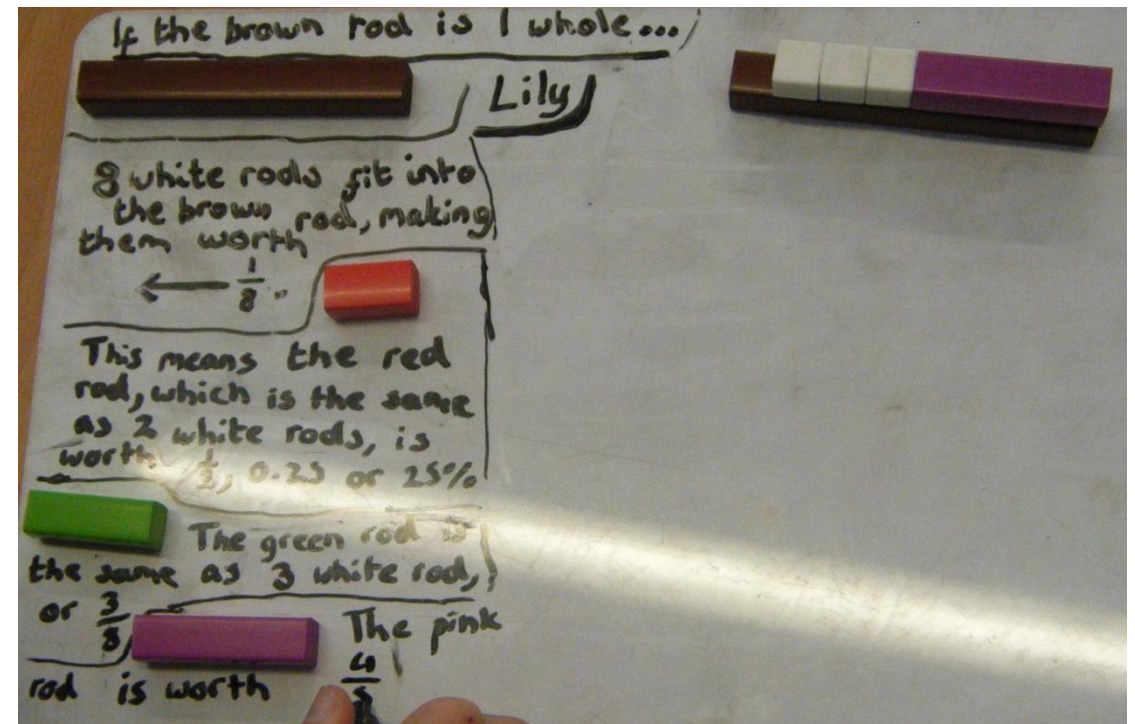 If the brown rod is 1 whole...
Lily
8 white rods fit into
the brown rod, making
them worth
← 1/8.
This means the red
rod, which is the same
as 2 white rods, is
worth 1/2, 0.25 or 25%
The green rod is
the same as 3 white rod,
or 3/8
The pink
rod is worth 4/